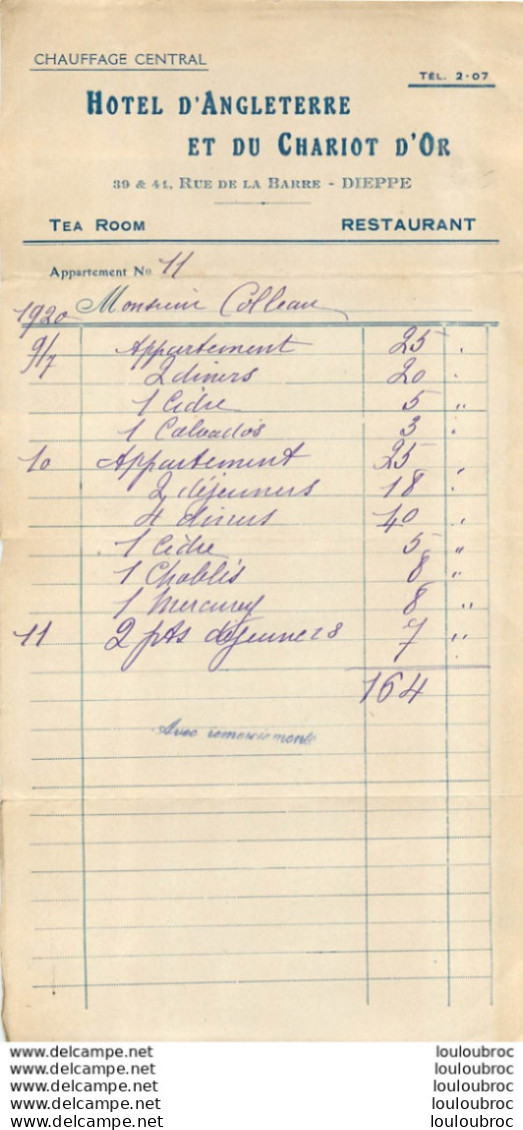 CHAUFFAGE CENTRAL
TÉL. 2-07
HOTEL D'ANGLETERRE
ET DU CHARIOT D'OR
39 & 41, RUE DE LA BARRE - DIEPPE
TEA ROOM RESTAURANT
Appartement No 11
1920 Monsieur Colleau
9/7 Appartement 25 "
2 diners 20 "
1 Cidre 5 "
1 Calvados 3 "
10 Appartement 25 "
2 déjeuners 18 "
4 diners 40 "
1 Cidre 5 "
1 Chablis 8 "
1 Mercurey 8 "
11 2 pts déjeuners 7 "
164
Avec remerciements
www.delcampe.net louloubroc
www.delcampe.net louloubroc
www.delcampe.net louloubroc
www.delcampe.net louloubroc
www.delcampe.net louloubroc